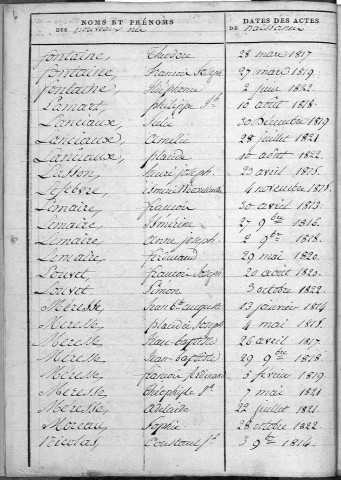 NOMS ET PRÉNOMS DATES DES ACTES
DES nouveaux nés DE naissance
fontaine, 28 mars 1817
fontaine, françois Joseph 27 mars 1819.
fontaine, Alphonse 2 juin 1822.
Lamart, philippe Jh 10 août 1818.
Lanciaux, Julie 30 Décembre 1819
Lanciaux, Amélie 28 juillet 1821
Lanciaux, placide 10 août 1822.
Lasson, henri joseph. 23 avril 1815.
Lefebvre, 4 novembre 1818.
Lemaire, françois 30 avril 1813.
Lemaire, Ismérine 27 9bre 1816.
Lemaire, anne joseph. 2 9bre 1818.
Lemaire, ferdinand 29 mai 1820.
Louvet, françois Joseph 20 août 1820.
Louvet, Simon 3 octobre 1822.
Meresse, Jean bte auguste 13 janvier 1814
Meresse, placide Joseph 4 mai 1815.
Meresse, Jean-baptiste 26 avril 1817
Meresse, Jean-baptiste 29 9bre 1818.
Meresse, françois ferdinand 3 février 1819
Meresse, théophile Jh 7 mai 1821
Meresse, Adelaïde 22 juillet 1821.
Moreau, Sophie 28 octobre 1822
Nicolas, Constant Jh 3 9bre 1814.